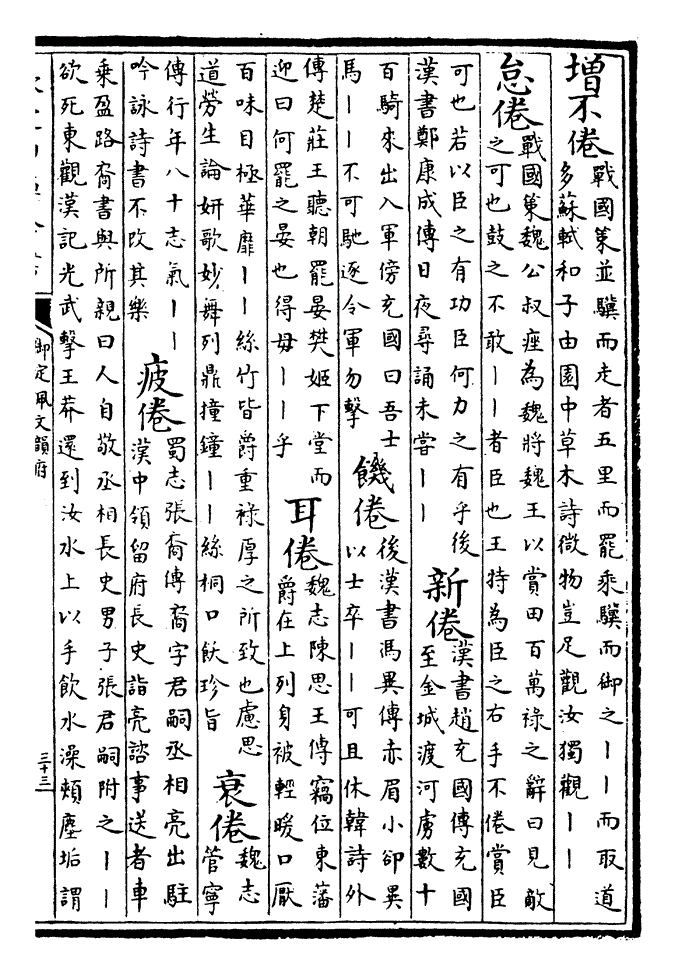 增不倦
戰國策並驥而走者五里而罷乘驥而御之丨丨而取道
多蘇軾和子由園中草木詩微物豈足觀汝獨觀丨丨
怠倦
戰國策魏公叔座為魏將魏王以賞田百萬祿之辭曰見敵
之可也鼓之不敢丨丨者臣也王持為臣之右手不倦賞臣
可也若以臣之有功臣何力之有乎後
漢書鄭康成傳日夜尋誦未嘗丨丨
新倦
漢書趙充國傳充國
至金城渡河虜數十
百騎來出入軍傍充國曰吾士
馬丨丨不可馳逐令軍勿擊
饑倦
後漢書馮異傳赤眉小卻異
以士卒丨丨可且休韓詩外
傳楚莊王聽朝罷晏樊姬下堂而
迎曰何罷之晏也得毋丨丨乎
耳倦
魏志陳思王傳竊位東藩
爵在上列身被輕暖口厭
百味目極華靡丨丨絲竹皆爵重祿厚之所致也慮思
道勞生論妍歌妙舞列鼎撞鐘丨丨絲桐口飫珍旨
衰倦
魏志
管寧
傳行年八十志氣丨丨
吟詠詩書不改其樂
疲倦
蜀志張裔傳裔字君嗣丞相亮出駐
漢中領留府長史詣亮諮事送者車
乘盈路裔書與所親曰人自敬丞相長史男子張君嗣附之丨丨
欲死東觀漢記光武擊王莽還到汝水上以手飲水澡頰塵垢謂
御定佩文韻府
三十三